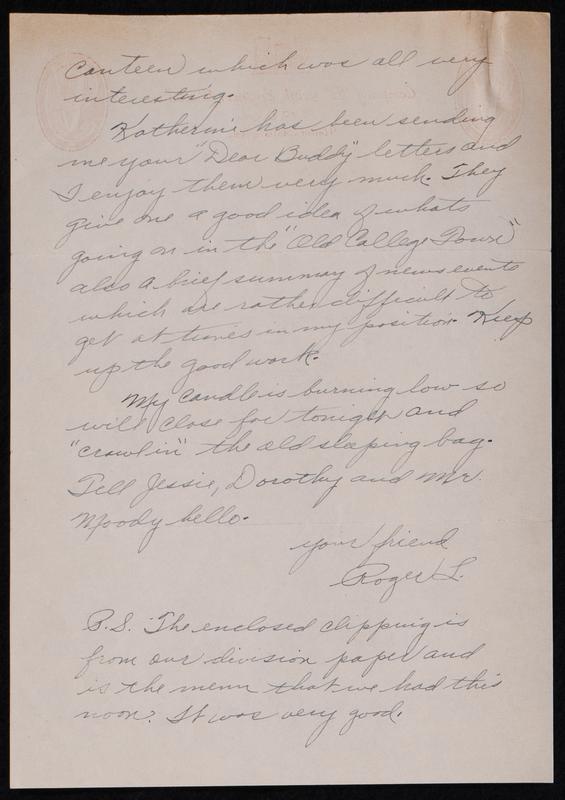 Canteen which was all very
interesting.
Katherine has been sending
me your "Dear Buddy" letters and
I enjoy them very much. They
give me a good idea of whats
going on in the "Old College Town"
also a brief summary of news events
which are rather difficult to
get at times in my position. Keep
up the good work.
My candle is burning low so
will close for tonight and
"crawl in" the old sleeping bag.
Tell Jessie, Dorothy and Mr.
Moody hello.
your friend
Roger L.
P.S. The enclosed clipping is
from our division paper and
is the menu that we had this
noon. It was very good.